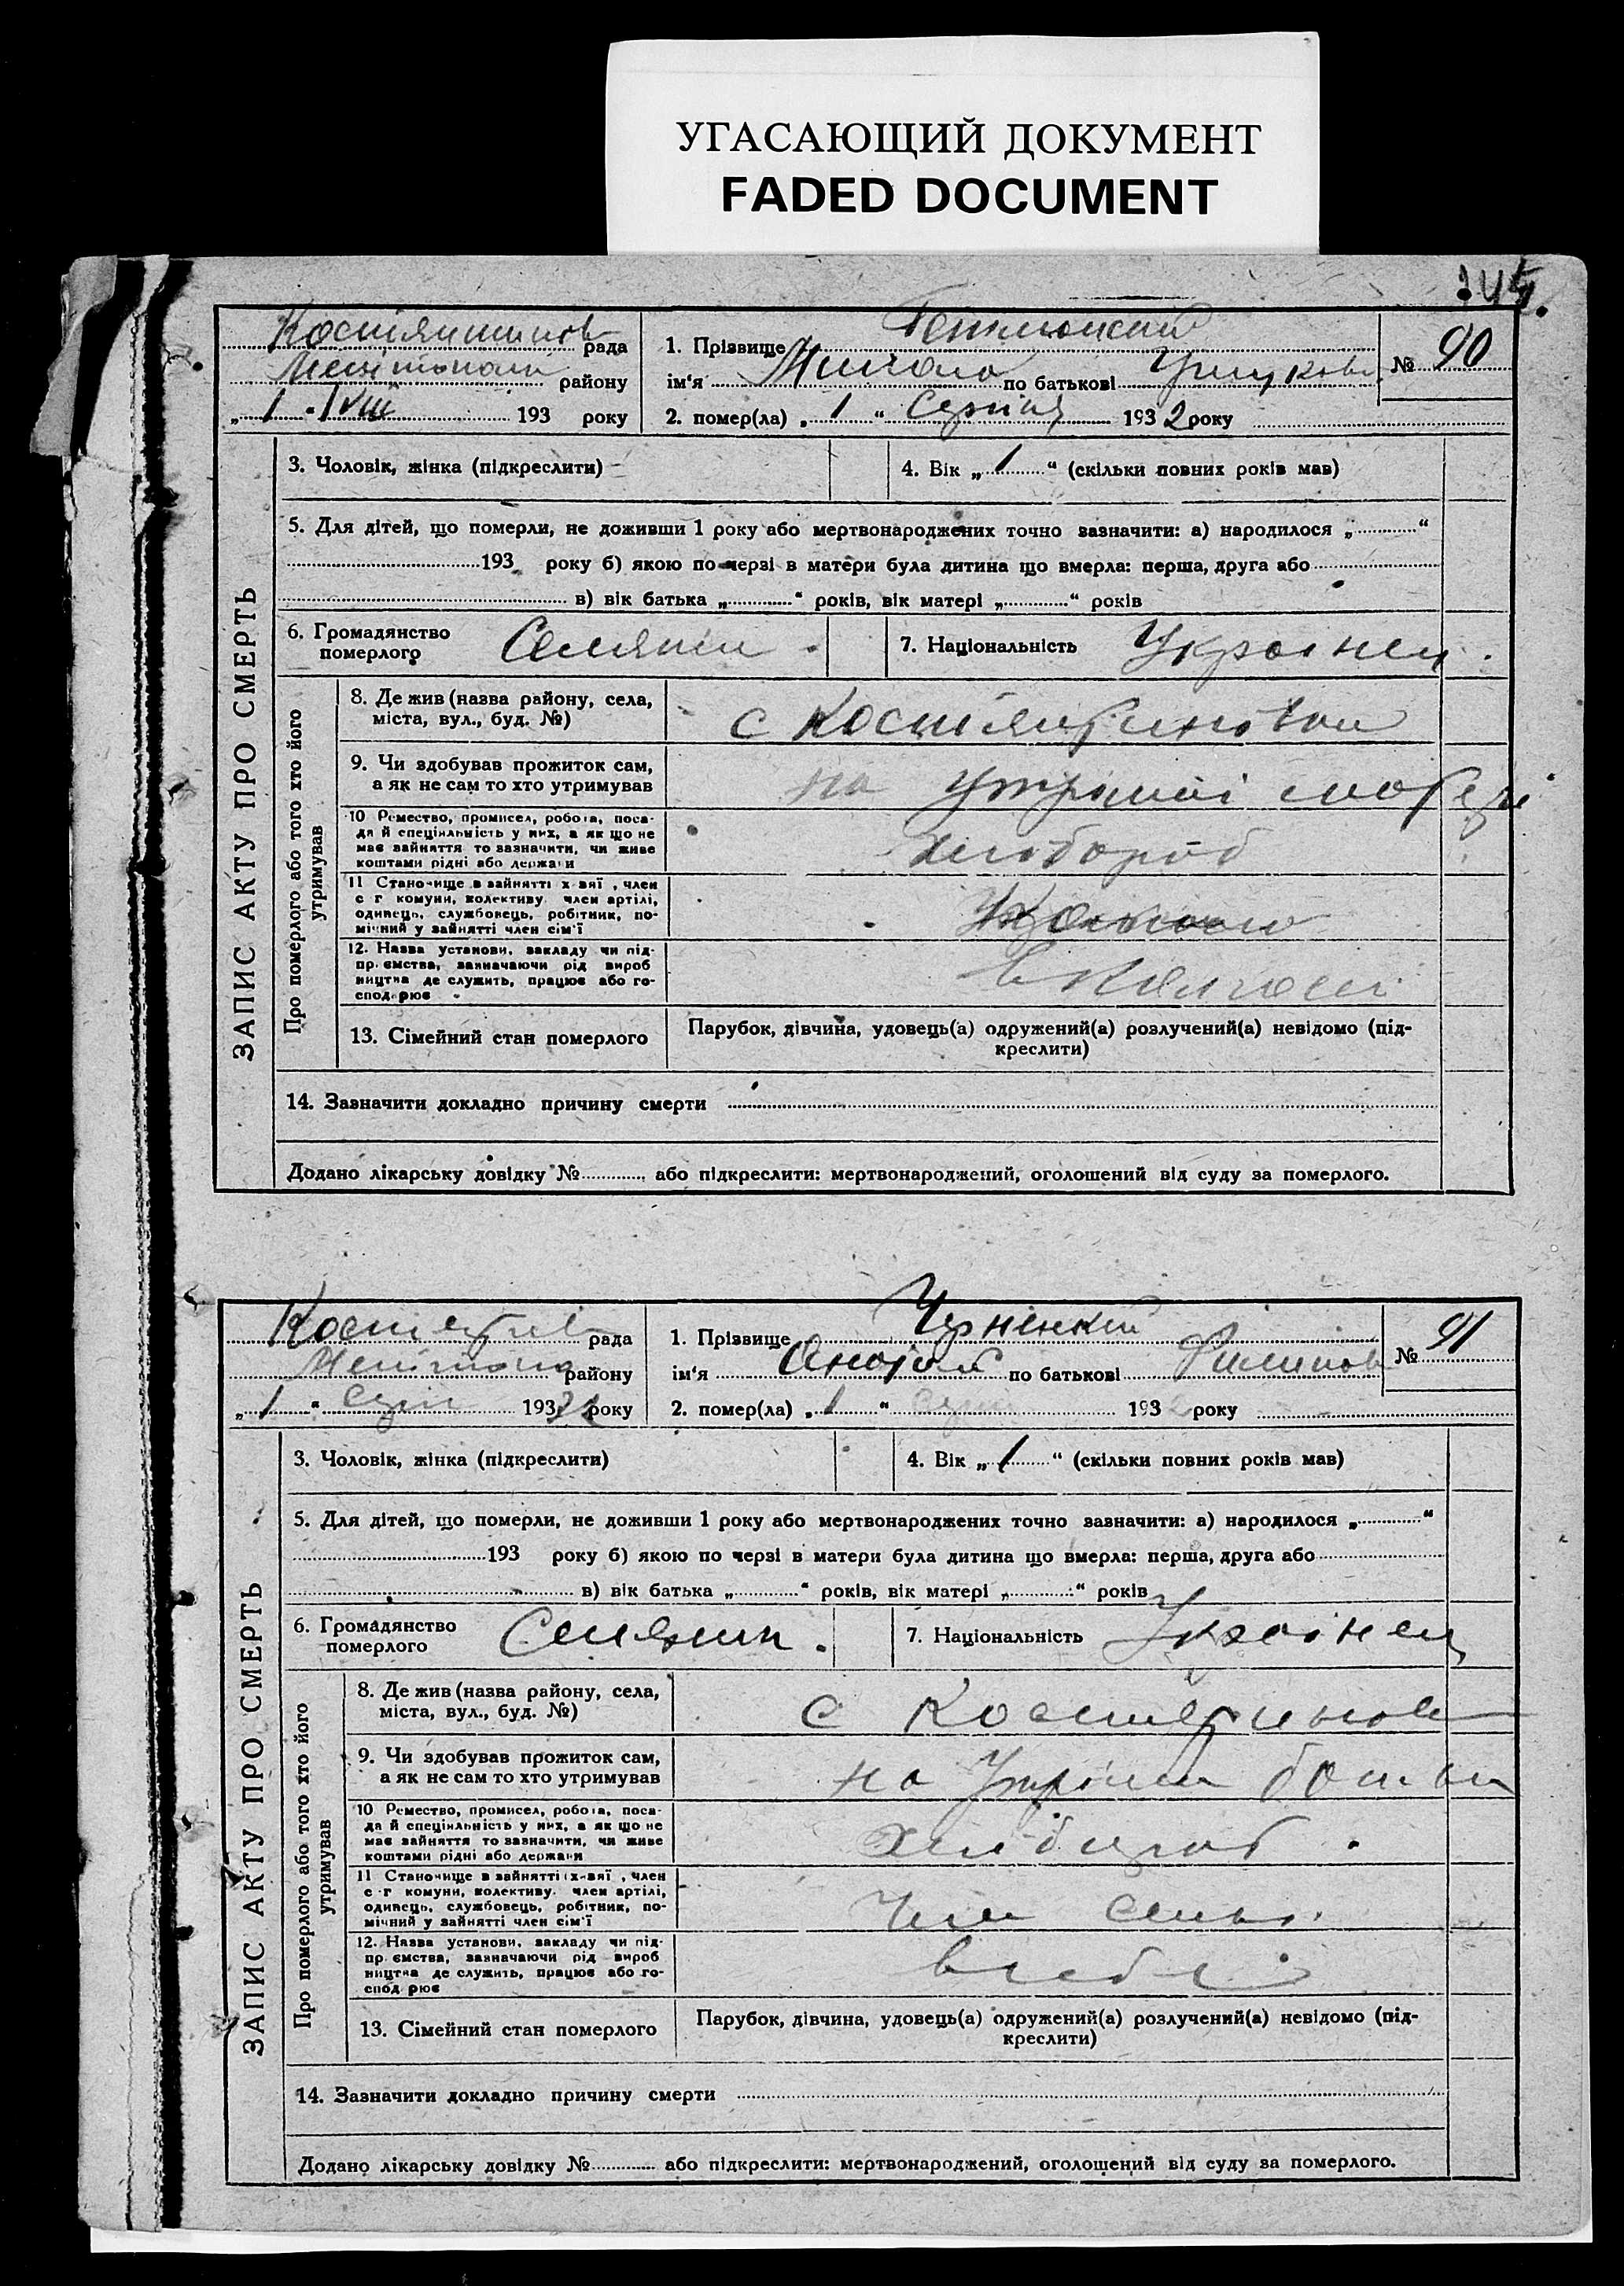 УГАСАЮЩИЙ ДОКУМЕНТ
FADED DOCUMENT
рада
1. Прізвище
№ 90
району
ім'я по батькові
„ 1 " VIII 193 року
2. помер(ла) „ 1 " Серпня 1932 року
3. Чоловік, жінка (підкреслити)
4. Вік „ 1 “ (скільки повних років мав)
5. Для дітей, що померли, не доживши 1 року або мертвонароджених точно зазначити: а) народилося „ “
193 року б) якою по черзі в матери була дитина що вмерла: перша, друга або
в) вік батька „ “ років, вік матері „ “ років
6. Громадянство
померлого
Селянин
7. Національність Українец
ЗАПИС АКТУ ПРО СМЕРТЬ
Про померлого або того хто його
утримував
8. Де жив (назва району, села,
міста, вул., буд. №)
с Костянтиновки
9. Чи здобував прожиток сам,
а як не сам то хто утримував
на утриманні матері
10 Ремество, промисел, робота, поса-
да й спеціяльність у них, а як що не
має зайняття то зазначити, чи живе
коштами рідні або держави
хлібороб
11 Становище в зайнятті х-вяї , член
с г комуни, колективу член артілі,
одинець, службовець, робітник, по-
мічний у зайнятті член сім'ї
12. Назва установи, закладу чи під-
пр. ємства, зазначаючи рід вироб
ництва де служить, працює або го-
сподарює
в колгоспі
13. Сімейний стан померлого
Парубок, дівчина, удовець(а) одружений(а) розлучений(а) невідомо (під-
креслити)
14. Зазначити докладно причину смерти
Додано лікарську довідку № або підкреслити: мертвонароджений, оголошений від суду за померлого.
рада
1. Прізвище Чернєнкий
№ 91
району
ім'я по батькові Филипов
„ 1 “ серп 1932 року
2. помер(ла) „ 1 “ серп 1932 року
3. Чоловік, жінка (підкреслити)
4. Вік „ 1 “ (скільки повних років мав)
5. Для дітей, що померли, не доживши 1 року або мертвонароджених точно зазначити: а) народилося „ “
193 року б) якою по черзі в матери була дитина що вмерла: перша, друга або
в) вік батька „ “ років, вік матері „ “ років
6. Громадянство
померлого
Селянин
7. Національність Українец
ЗАПИС АКТУ ПРО СМЕРТЬ
Про померлого або того хто його
утримував
8. Де жив (назва району, села,
міста, вул., буд. №)
с
9. Чи здобував прожиток сам,
а як не сам то хто утримував
на
10 Ремество, промисел, робота, поса-
да й спеціяльність у них, а як що не
має зайняття то зазначити, чи живе
коштами рідні або держави
хлібороб
11 Становище в зайнятті х-вяї , член
с-г комуни, колективу член артілі,
одинець, службовець, робітник, по-
мічний у зайнятті член сім'ї
12. Назва установи, закладу чи під-
пр ємства, зазначаючи рід вироб
ництва де служить, працює або го-
спод рює
13. Сімейний стан померлого
Парубок, дівчина, удовець(а) одружений(а) розлучений(а) невідомо (під-
креслити)
14. Зазначити докладно причину смерти
Додано лікарську довідку № або підкреслити: мертвонароджений, оголошений від суду за померлого.